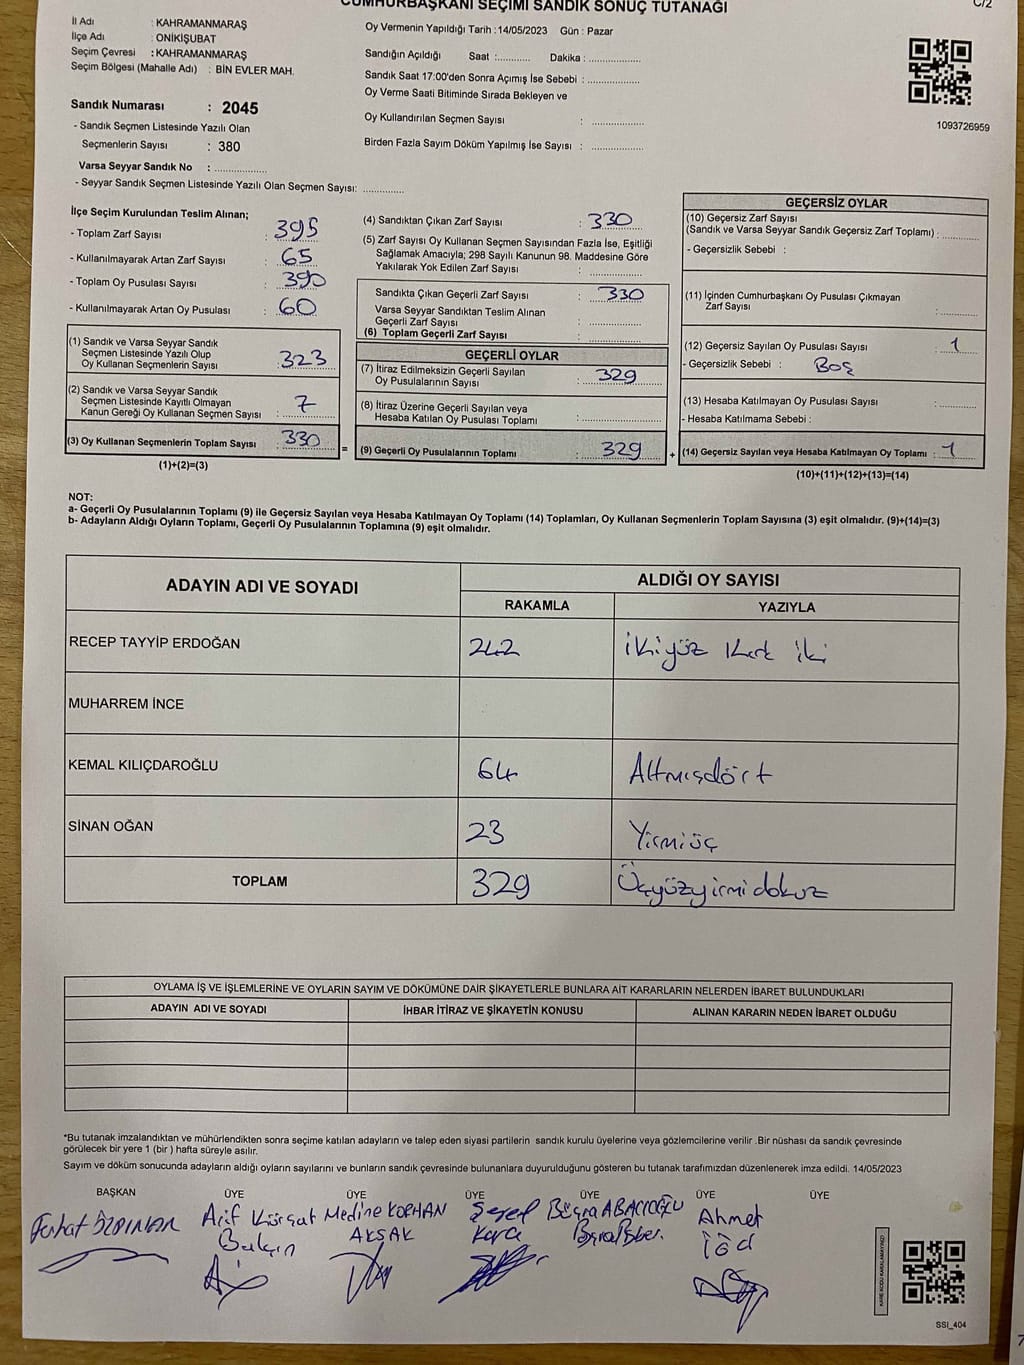 CUMHURBAŞKANI SEÇİMİ SANDIK SONUÇ TUTANAĞI
C/2
İl Adı : KAHRAMANMARAŞ
İlçe Adı : ONİKİŞUBAT
Seçim Çevresi : KAHRAMANMARAŞ
Seçim Bölgesi (Mahalle Adı) : BİN EVLER MAH.
Sandık Numarası : 2045
- Sandık Seçmen Listesinde Yazılı Olan
Seçmenlerin Sayısı : 380
Varsa Seyyar Sandık No : ....................
- Seyyar Sandık Seçmen Listesinde Yazılı Olan Seçmen Sayısı: ...............
Oy Vermenin Yapıldığı Tarih : 14/05/2023 Gün : Pazar
Sandığın Açıldığı Saat :............. Dakika : ...................
Sandık Saat 17:00'den Sonra Açımış İse Sebebi : ...................
Oy Verme Saati Bitiminde Sırada Bekleyen ve
Oy Kullandırılan Seçmen Sayısı : ...................
Birden Fazla Sayım Döküm Yapılmış İse Sayısı : ...................
1093726959
İlçe Seçim Kurulundan Teslim Alınan;
- Toplam Zarf Sayısı : 395
- Kullanılmayarak Artan Zarf Sayısı : 65
- Toplam Oy Pusulası Sayısı : 390
- Kullanılmayarak Artan Oy Pusulası : 60
(1) Sandık ve Varsa Seyyar Sandık
Seçmen Listesinde Yazılı Olup
Oy Kullanan Seçmenlerin Sayısı : 323
(2) Sandık ve Varsa Seyyar Sandık
Seçmen Listesinde Kayıtlı Olmayan
Kanun Gereği Oy Kullanan Seçmen Sayısı : 7
(3) Oy Kullanan Seçmenlerin Toplam Sayısı : 330
(1)+(2)=(3)
(4) Sandıktan Çıkan Zarf Sayısı : 330
(5) Zarf Sayısı Oy Kullanan Seçmen Sayısından Fazla İse, Eşitliği
Sağlamak Amacıyla; 298 Sayılı Kanunun 98. Maddesine Göre
Yakılarak Yok Edilen Zarf Sayısı : ...................
Sandıkta Çıkan Geçerli Zarf Sayısı : 330
Varsa Seyyar Sandıktan Teslim Alınan
Geçerli Zarf Sayısı : ...................
(6) Toplam Geçerli Zarf Sayısı : ...................
GEÇERLİ OYLAR
(7) İtiraz Edilmeksizin Geçerli Sayılan
Oy Pusulalarının Sayısı : 329
(8) İtiraz Üzerine Geçerli Sayılan veya
Hesaba Katılan Oy Pusulası Toplamı : ...................
= (9) Geçerli Oy Pusulalarının Toplamı : 329
GEÇERSİZ OYLAR
(10) Geçersiz Zarf Sayısı
(Sandık ve Varsa Seyyar Sandık Geçersiz Zarf Toplamı) : .............
- Geçersizlik Sebebi :
(11) İçinden Cumhurbaşkanı Oy Pusulası Çıkmayan
Zarf Sayısı : .............
(12) Geçersiz Sayılan Oy Pusulası Sayısı : 1
- Geçersizlik Sebebi : Boş
(13) Hesaba Katılmayan Oy Pusulası Sayısı : .............
- Hesaba Katılmama Sebebi :
+ (14) Geçersiz Sayılan veya Hesaba Katılmayan Oy Toplamı : 1
(10)+(11)+(12)+(13)=(14)
NOT:
a- Geçerli Oy Pusulalarının Toplamı (9) ile Geçersiz Sayılan veya Hesaba Katılmayan Oy Toplamı (14) Toplamları, Oy Kullanan Seçmenlerin Toplam Sayısına (3) eşit olmalıdır. (9)+(14)=(3)
b- Adayların Aldığı Oyların Toplamı, Geçerli Oy Pusulalarının Toplamına (9) eşit olmalıdır.
ADAYIN ADI VE SOYADI
ALDIĞI OY SAYISI
RAKAMLA YAZIYLA
RECEP TAYYİP ERDOĞAN 242 ikiyüz kırk iki
MUHARREM İNCE
KEMAL KILIÇDAROĞLU 64 Altmışdört
SİNAN OĞAN 23 Yirmiüç
TOPLAM 329 Üçyüzyirmidokuz
OYLAMA İŞ VE İŞLEMLERİNE VE OYLARIN SAYIM VE DÖKÜMÜNE DAİR ŞİKAYETLERLE BUNLARA AİT KARARLARIN NELERDEN İBARET BULUNDUKLARI
ADAYIN ADI VE SOYADI İHBAR İTİRAZ VE ŞİKAYETİN KONUSU ALINAN KARARIN NEDEN İBARET OLDUĞU
*Bu tutanak imzalandıktan ve mühürlendikten sonra seçime katılan adayların ve talep eden siyasi partilerin sandık kurulu üyelerine veya gözlemcilerine verilir .Bir nüshası da sandık çevresinde
görülecek bir yere 1 (bir ) hafta süreyle asılır.
Sayım ve döküm sonucunda adayların aldığı oyların sayılarını ve bunların sandık çevresinde bulunanlara duyurulduğunu gösteren bu tutanak tarafımızdan düzenlenerek imza edildi. 14/05/2023
BAŞKAN ÜYE ÜYE ÜYE ÜYE ÜYE ÜYE
Ferhat ÖZPINAR
Arif Kürşat
Medine KORHAN
AKŞAK
Kara
Büşra ABACIOĞLU
Ahmet
SSI_404